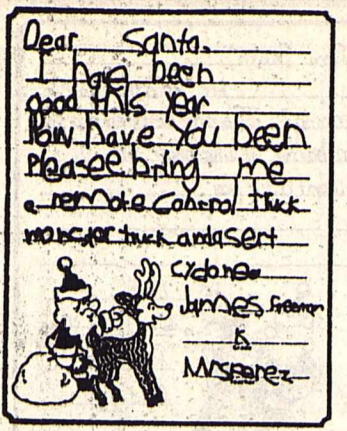 Dear Santa.
I have been
good this year
How have you been
Pleasee bring me
a remote control truck
monster truck and a Sert
cyclone
James Freeman
k
Mrs perez